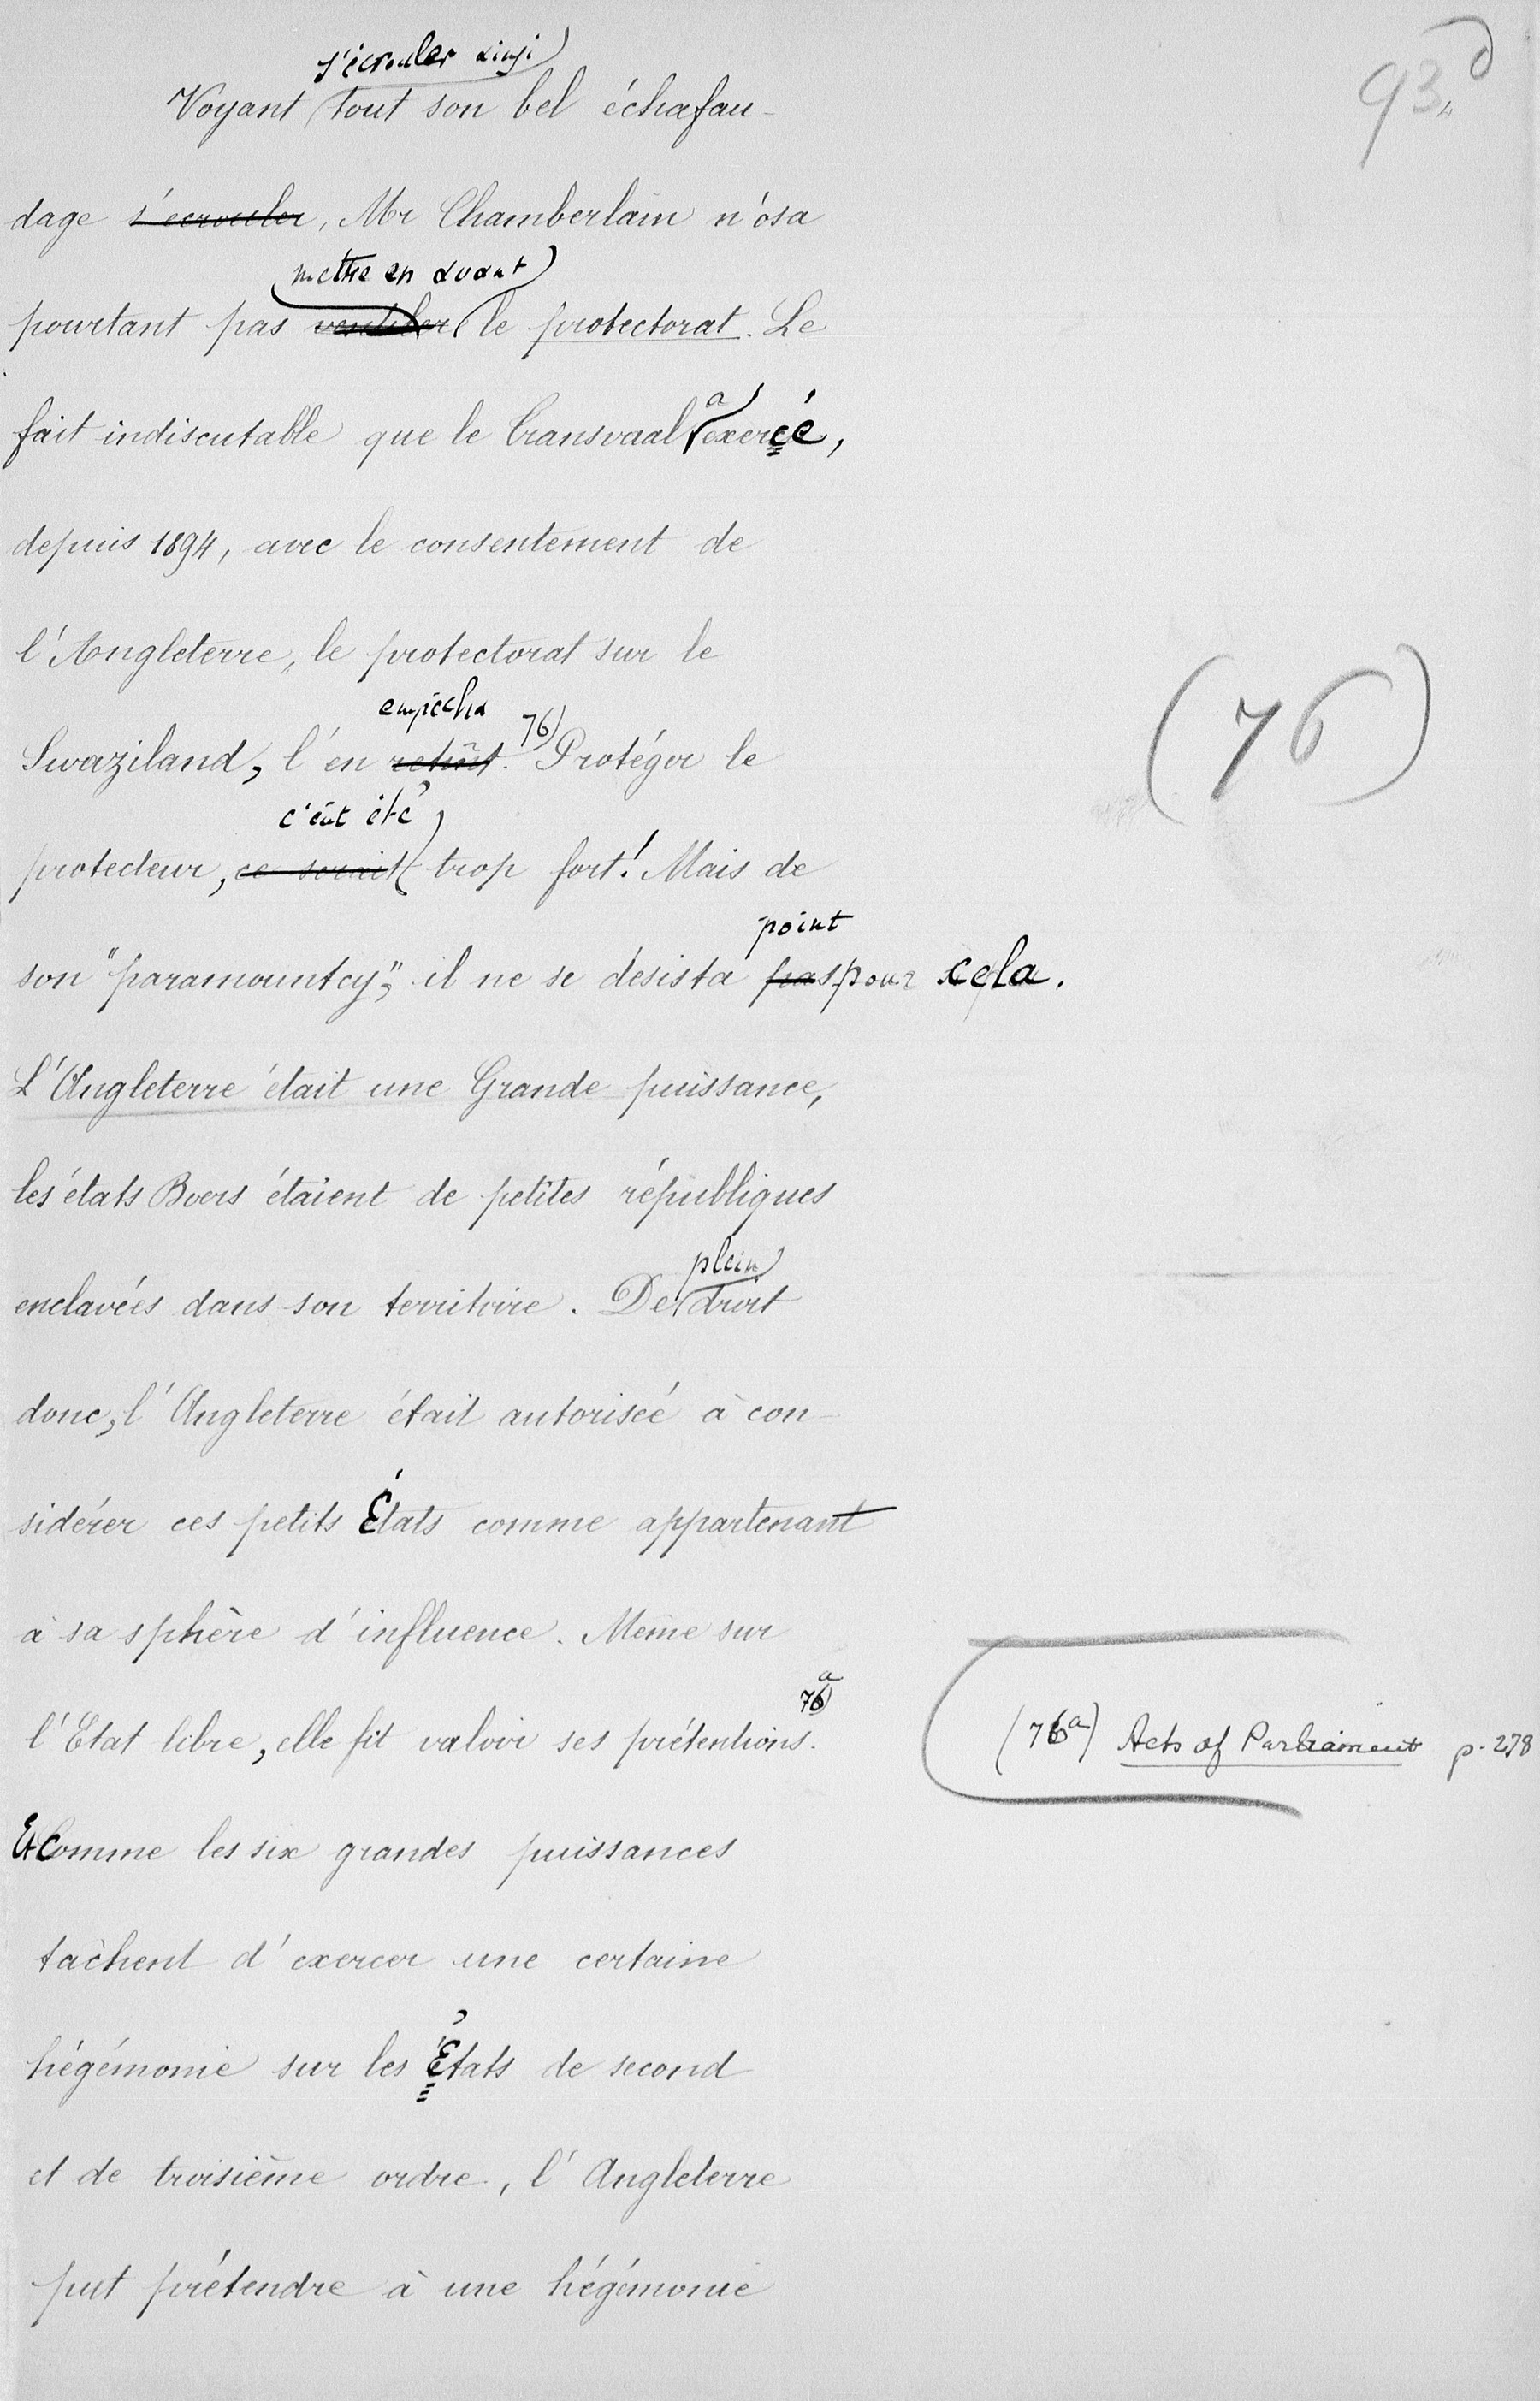 93d
s'écrouler ainsi
Voyant tout son bel échafau-
dage s'ecrouler, Mr Chamberlain n'osa
mettre en avant
pourtant pas ventiler le protectorat. Le
a
fait indiscutable que le Transvaal exercé,
depuis 1894, avec le consentement de
l'Angleterre, le protectorat sur le
empêcha
Swaziland, l'en retînt. 76) Protéger le
(76)
c'eût été
protecteur, ce serait trop fort! Mais de
point
son "paramountcy", il ne se désista pas pour cela.
L'Angleterre était une Grande puissance,
les états Boers étaient de petites républiques
plein
enclavées dans son territoire. De droit
donc, l'Angleterre était autorisée à con-
sidérer ces petits États comme appartenant
à sa sphère d'influence. Même sur
l'Etat libre, elle fit valoir ses prétentions. 76a)
(76a) Acts of Parliament p. 278
Et Comme les six grandes puissances
tâchent d'exercer une certaine
hégémonie sur les États de second
et de troisième ordre, l'Angleterre
put prétendre à une hégémonie